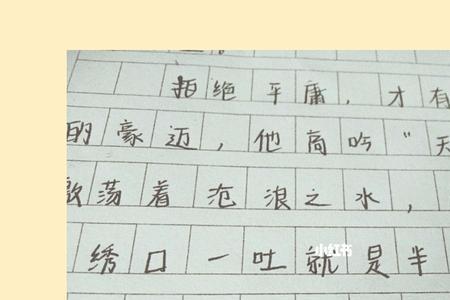 拒绝平庸，才有
的豪迈，他高吟“天
荡着沧浪之水，
绣口一吐就是半
小红书